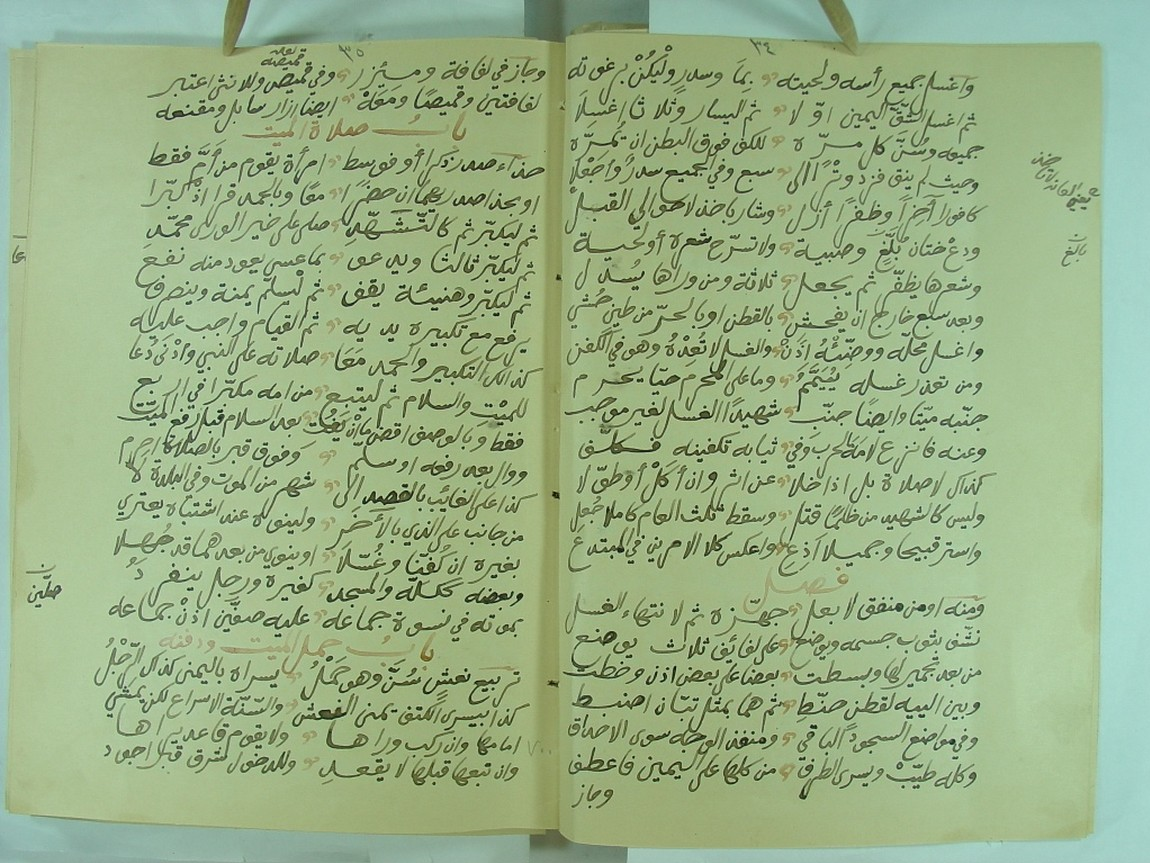 ٣٤
واغسل جميع رأسه ولحيته بما وسدر وليكن برغوته
ثم اغسل الشق اليمين اوّلا ثم اليسار وثلاثا إغسلا
جميعه وسُنَّ كل مرّة للكف فوق البطن ان تمرّه
وحيث لم ينق فزد وترًا الى سبع وفي الجميع سدرًا وأجعلا
كافورا أخِرًا وظفرًا أزل وشاربا خذ لا حوالي القبل
ودع ختان بُلَّغٍ وصبية ولا تسرّح شعرة أو لحية
وشعرها يظفر ثم يجعل ثلاثة ومن وراها يسدل
وبعد سبع خارج ان يفحش بالقطن او بالحرّ من طين حُشي
واغسل محلّه ووضّئنْهُ اذن والغسل لا تعده وهو في الكفن
ومن تعذر غسله يُيَمَّمُ وما على المحرم حيّا يحرم
جنّبه ميّتا وايضا جنّب شهيدًا الغسل لغير موجب
وعنه فانزع لامة الحرب وفي ثيابه تكفينه
كذاك لا صلاة بل اذا خلا عن اثر وان أكل أو طوّلا
وليس كالشهيد من ظلمًا قتل وسقط ثلث العام كاملا جُعل
واستر قبيحا وجميلا أذِعِ واعكس كلا الامرين في المبتدع
فصل
ومنه او من منفق لا بعل جهّزه ثم لانتهاء الغسل
نشّف بثوب جسمه ويوضع على لفائف ثلاث يوضع
من بعد تجميرلها وبسطت بعضا على بعض اذن وخطت
وبين الييه لقطن حنّط ثم هما بمثل تبّان اضبط
وفي مواضع السجود الباقي ومنفذ الوجه سوى الاحداق
وكله طيّبْ ويسرى الطرف من كلها على اليمين فاعطف
وجاز
بالغ
٣٥
وجاز في لفافة وميئزر وفي قميص وللانثى اعتبر
لفافتين وقميصًا ومَعَهْ ايضا ازار سابل ومقنعه
باب صلاة الميت
حذاء صدر ذكرا أو فوق سط امرأة يقوم من أمّ فقط
او بحذا صدريهما ان حضرا معًا وبالحمد قرا اذ كبّرا
ثم ليكبّر ثم كالتّشهّدِ صلى على خير الورى محمّد
ثم ليكبّر ثالثا ويدعو بما عسى يعود منه نفع
ثم ليكبّر وهنيئة يقف ثم ليسلّم يمنة وينصرف
يرفع مع تكبيره يديه ثم القيام واجب عليه
كذلك التكبير والحمد مَعَا صلاته على النبي وأدْنى دُعا
للميْت والسلام ثم ليتبع من امه مكبّرا في اربع
فقط وبالوصف اقض ما ان يَفُت بعد السلام قبل رفع الميّت
ووال بعد رفعه او سلم وفوق قبر بالصلاة احرم
كذا على الغائب بالقصد الى شهر من الموت وفي البلدة لا
من جانب على الذي بالأخَر ولينوه عند اشتباه يعتري
بغيره ان كُفّنا وغُسّلا او ينوي من بعدهما قد جُهلا
وبعضه ككله والمسجد كغيره ورجل ينفردُ
بموته في نسوة جماعه عليه صفّين اذنْ جماعه
صلّين
باب حمل الميت ودفنه
تربيع نعش سُنَّ وهو حَمْلُ يسراه باليمنى كذاك الرّجلُ
كذا بيسرى الكتف يمنى النعش والسّنّة الاسراع لكن يمشي
امامها وان ركب وراها ولا يقوم قاعد يراها
وان تبعها قبلها لا يقعد وللدخول شرق قبل اجود